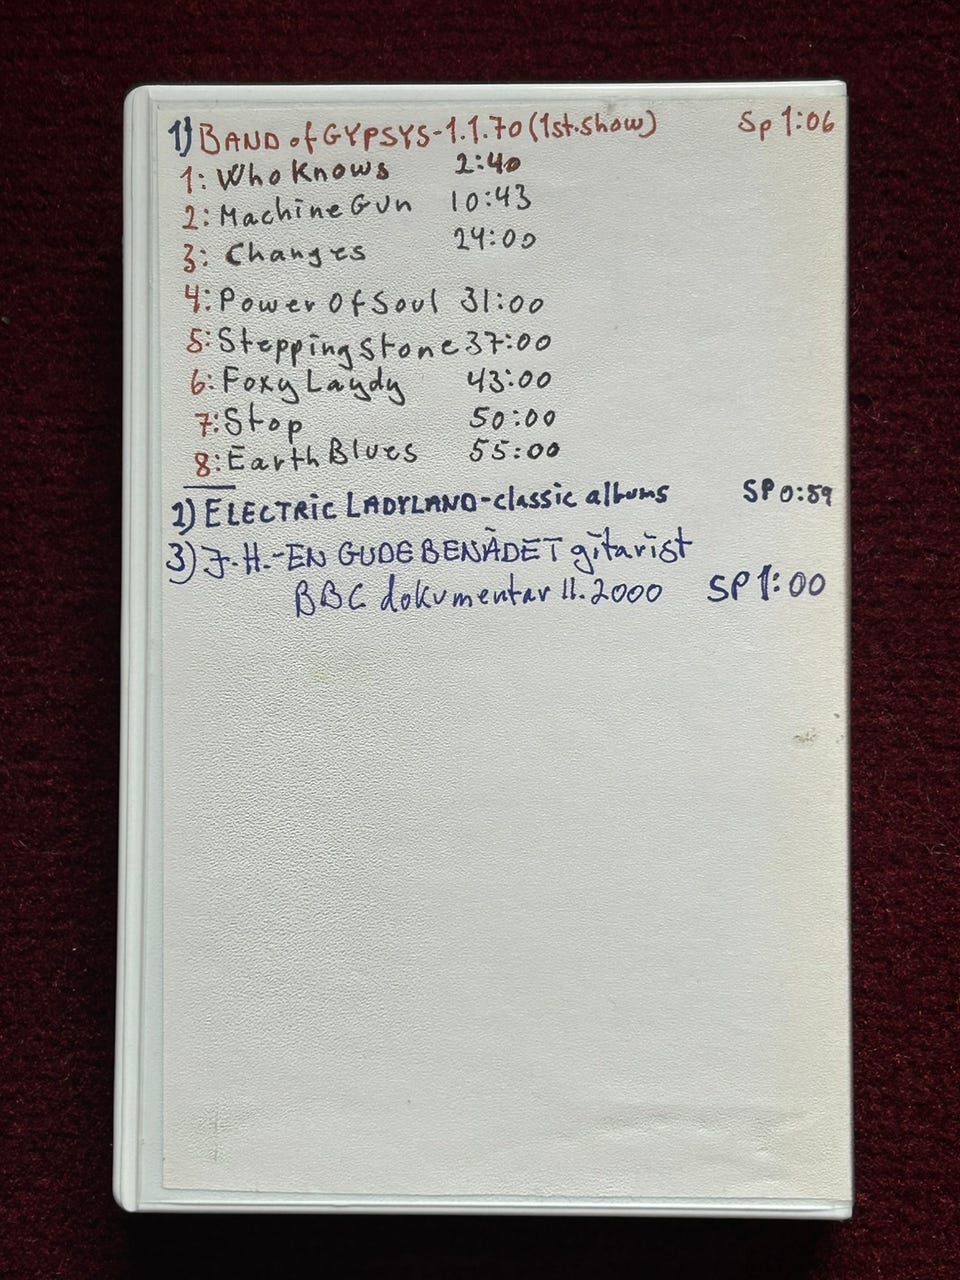 1) BAND of GYPSYS-1.1.70 (1st.show) Sp 1:06
1: Who Knows 2:40
2: Machine Gun 10:43
3: Changes 24:00
4: Power Of Soul 31:00
5: Stepping Stone 37:00
6: Foxy Laydy 43:00
7: Stop 50:00
8: Earth Blues 55:00
2) ELECTRIC LADYLAND-classic albums SP 0:59
3) J.H.-EN GUDEBENÅDET gitarist
BBC dokumentar 11.2000 SP 1:00